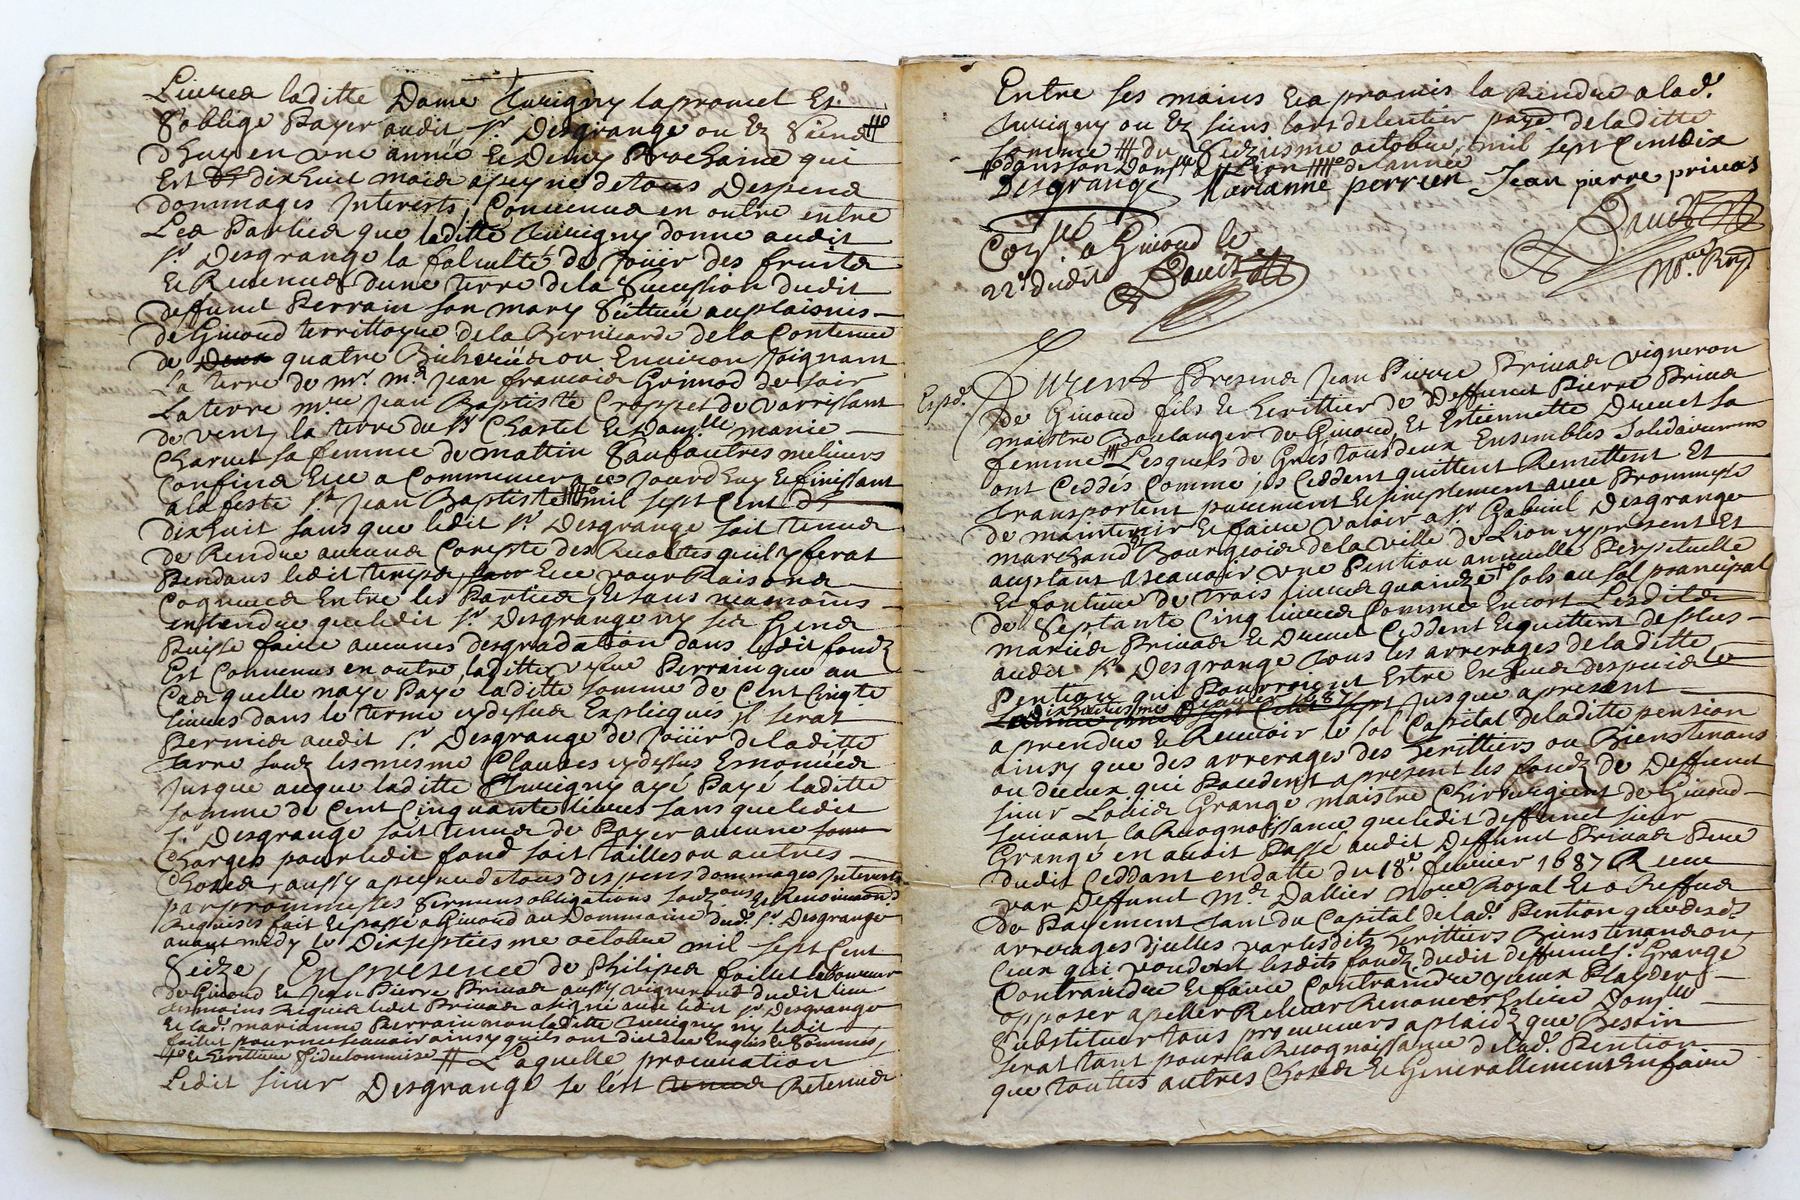 Livres laditte Dame Thurigny la promet Et
S'oblige Payer audit Sr Desgrange ou Ez Siens
dhuy en une année Et Demy Prochaine qui
Est dixhuit mois apeyne de tous Despens
dommages Interests, Convenus en outre entre
Les Parties que laditte Thurigny donne audit
Sr Desgrange la faculté de Jouir des fruits
Et Revenus dune terre de la Succession dudit
deffunt Perrain son mary Scittuée au plaisnes
de Givord territtoyre de la Bernicarde de la Contenue
de Deux quatre Bicherées ou Environ Joignant
La terre de mr. me Jean francois Grimod de soir
La terre Jean Baptiste Croppet de Varrissant
de vent, la terre du Sr Chastel Et Damlle marie
Charvet sa femme de mattin Sauf autres melieurs
Confins Et ce a Commencer ce Jourdhuy Et finissant
a la feste St Jean Baptiste mil sept Cent
dixhuit sans que ledit Sr Desgrange soit tenus
de Rendre aucuns Compte des Recoltes quil y ferat
Pendans ledit temps, Et ce pour Raisons
Cognues Entre les Parties, Et sans neamoins
entendre que ledit Sr Desgrange ny ses Gens
Puisse faire aucunes desgradation dans ledit fondz
Est Convenus en outre laditte vefve Perrain que au
Cas quelle naye Payé laditte somme de Cent Cinqte
livres dans le terme cydessus Explicqués il serat
Permis audit Sr Desgrange de Jouir de laditte
terre soubz les mesme Clauses cydessus Ernoncées
Jusque auque laditte Thurigny ayé Payé laditte
somme de Cent Cinquante livres sans que ledit
Sr Desgrange soit tenus de Payer aucune
Charges pour ledit fond soit tailles ou autres
Choses, aussy apeyne de tous despens dommages Interests
par promesses Sermens obligations Soubzons Et Renoncions
Requises fait Et passé a Givord au Dommaine dudt Sr Desgrange
avant midy le Dixseptiesme octobre mil sept Cent
Seize, En presence de Philipes faillet laboureur
de Givord Et Jean Pierre Privas aussy vigneront dudit lieu
tesmoins requis ledit Privas a signé avec ledit Sr Desgrange
Et lad. marianne Perrain non laditte Thurigny ny ledit
faillet pour ne scavoir ainsy quils ont dit de ce Enquis Et Sommés,
Laquelle procuration
Ledit sieur Desgrange se lest tenus Retenue
Entre ses mains Et a promis la Rendre a lad.
Thurigny ou Ez siens lors de lentier paye. de laditte
somme du Seiziesme octobre, mil sept Cent dix
dans son a Lion de lannée
Desgrange Marianne perrien Jean pierre privas
Dauct
Nore Royl
a Givord le
22e dudit
Dauct
Expd.
Furent Presens Jean Pierre Privas vigneron
de Givord fils Et heritier de Deffunct Pierre Privas
maistre Boulanger du Givord, Et Estiennette Drevet sa
femme Lesquels de Gres tous deux Ensembles Solidairem
ont Ceddés Comme ils Ceddent quittent Remettent Et
transportent purement Et simplement avec Prommesse
de maintenir Et faire valoir a Sr Gabriel Desgrange
marchand Bourgeois de la ville de Lion cy present Et
auptant ascauoir une Pention annuelle Perpetuelle
Et fontiere de trois livres quainze sols au sol prancipal
de Septante Cinq livres Comme Encort Lesdits
mariés Privas Et Drevet Ceddent Et quittent dessus
audit Sr Desgrange tous les arrerages de laditte
Pention qui Pourroient Estre Escheus despuis le
Jusque a present
a prendre Et Recevoir le sol Capital de laditte pension
ainsy que des arrerages des heritiers ou Bienstenans
ou deceux qui Possedent apresent les fondz de Deffunct
sieur Louis Grange maistre Chirurgient de Givord
suivant la Recognoissance que ledit deffunct sieur
Grange en avoit Passé audit Deffunct Privas Pere
dudit Ceddant en datte du 18e. fevrier 1687 Receue
par Deffunct Me. Dallier Nore Royal Et a Reffus
de Payement tant du Capital de lad. Pention que desd.
arrerages Dicelles par lesdits heritiers Bienstenans ou
Ceux qui Possedent lesdits fondz dudit deffunct Sr. Grange
Contraindre Et faire Contraindre yceux Playder
opposer apeller Relever Renoncer Eslire Domlle
Substituer tous procureurs a plaidz que Besoin
serat tant pour la Recognoissance de lad. Pention
que touttes autres Choses Et Generallement En faire